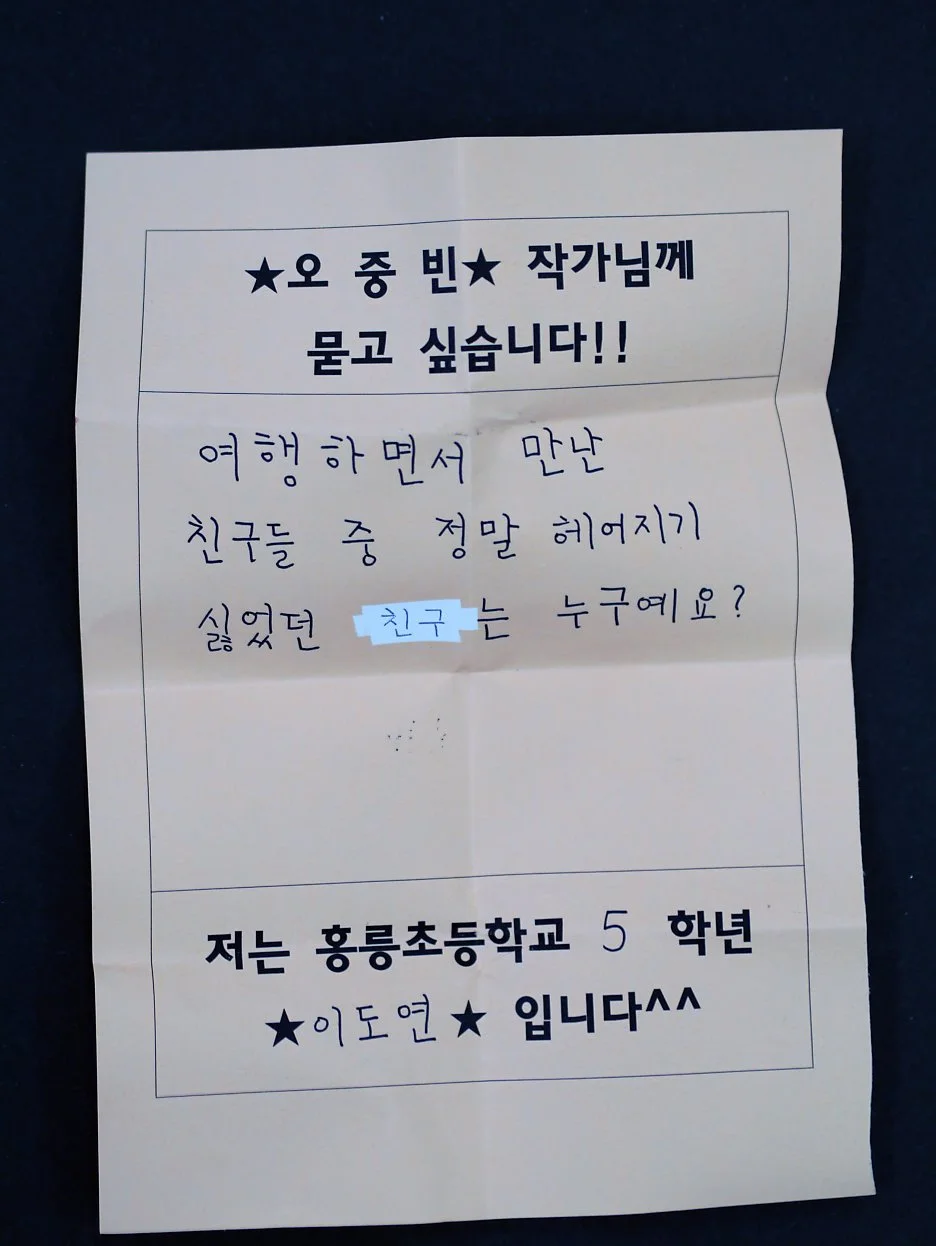 ★오 중 빈★ 작가님께
묻고 싶습니다!!
여행하면서 만난
친구들 중 정말 헤어지기
싫었던 친구는 누구예요?
저는 홍릉초등학교 5 학년
★이도연★ 입니다^^